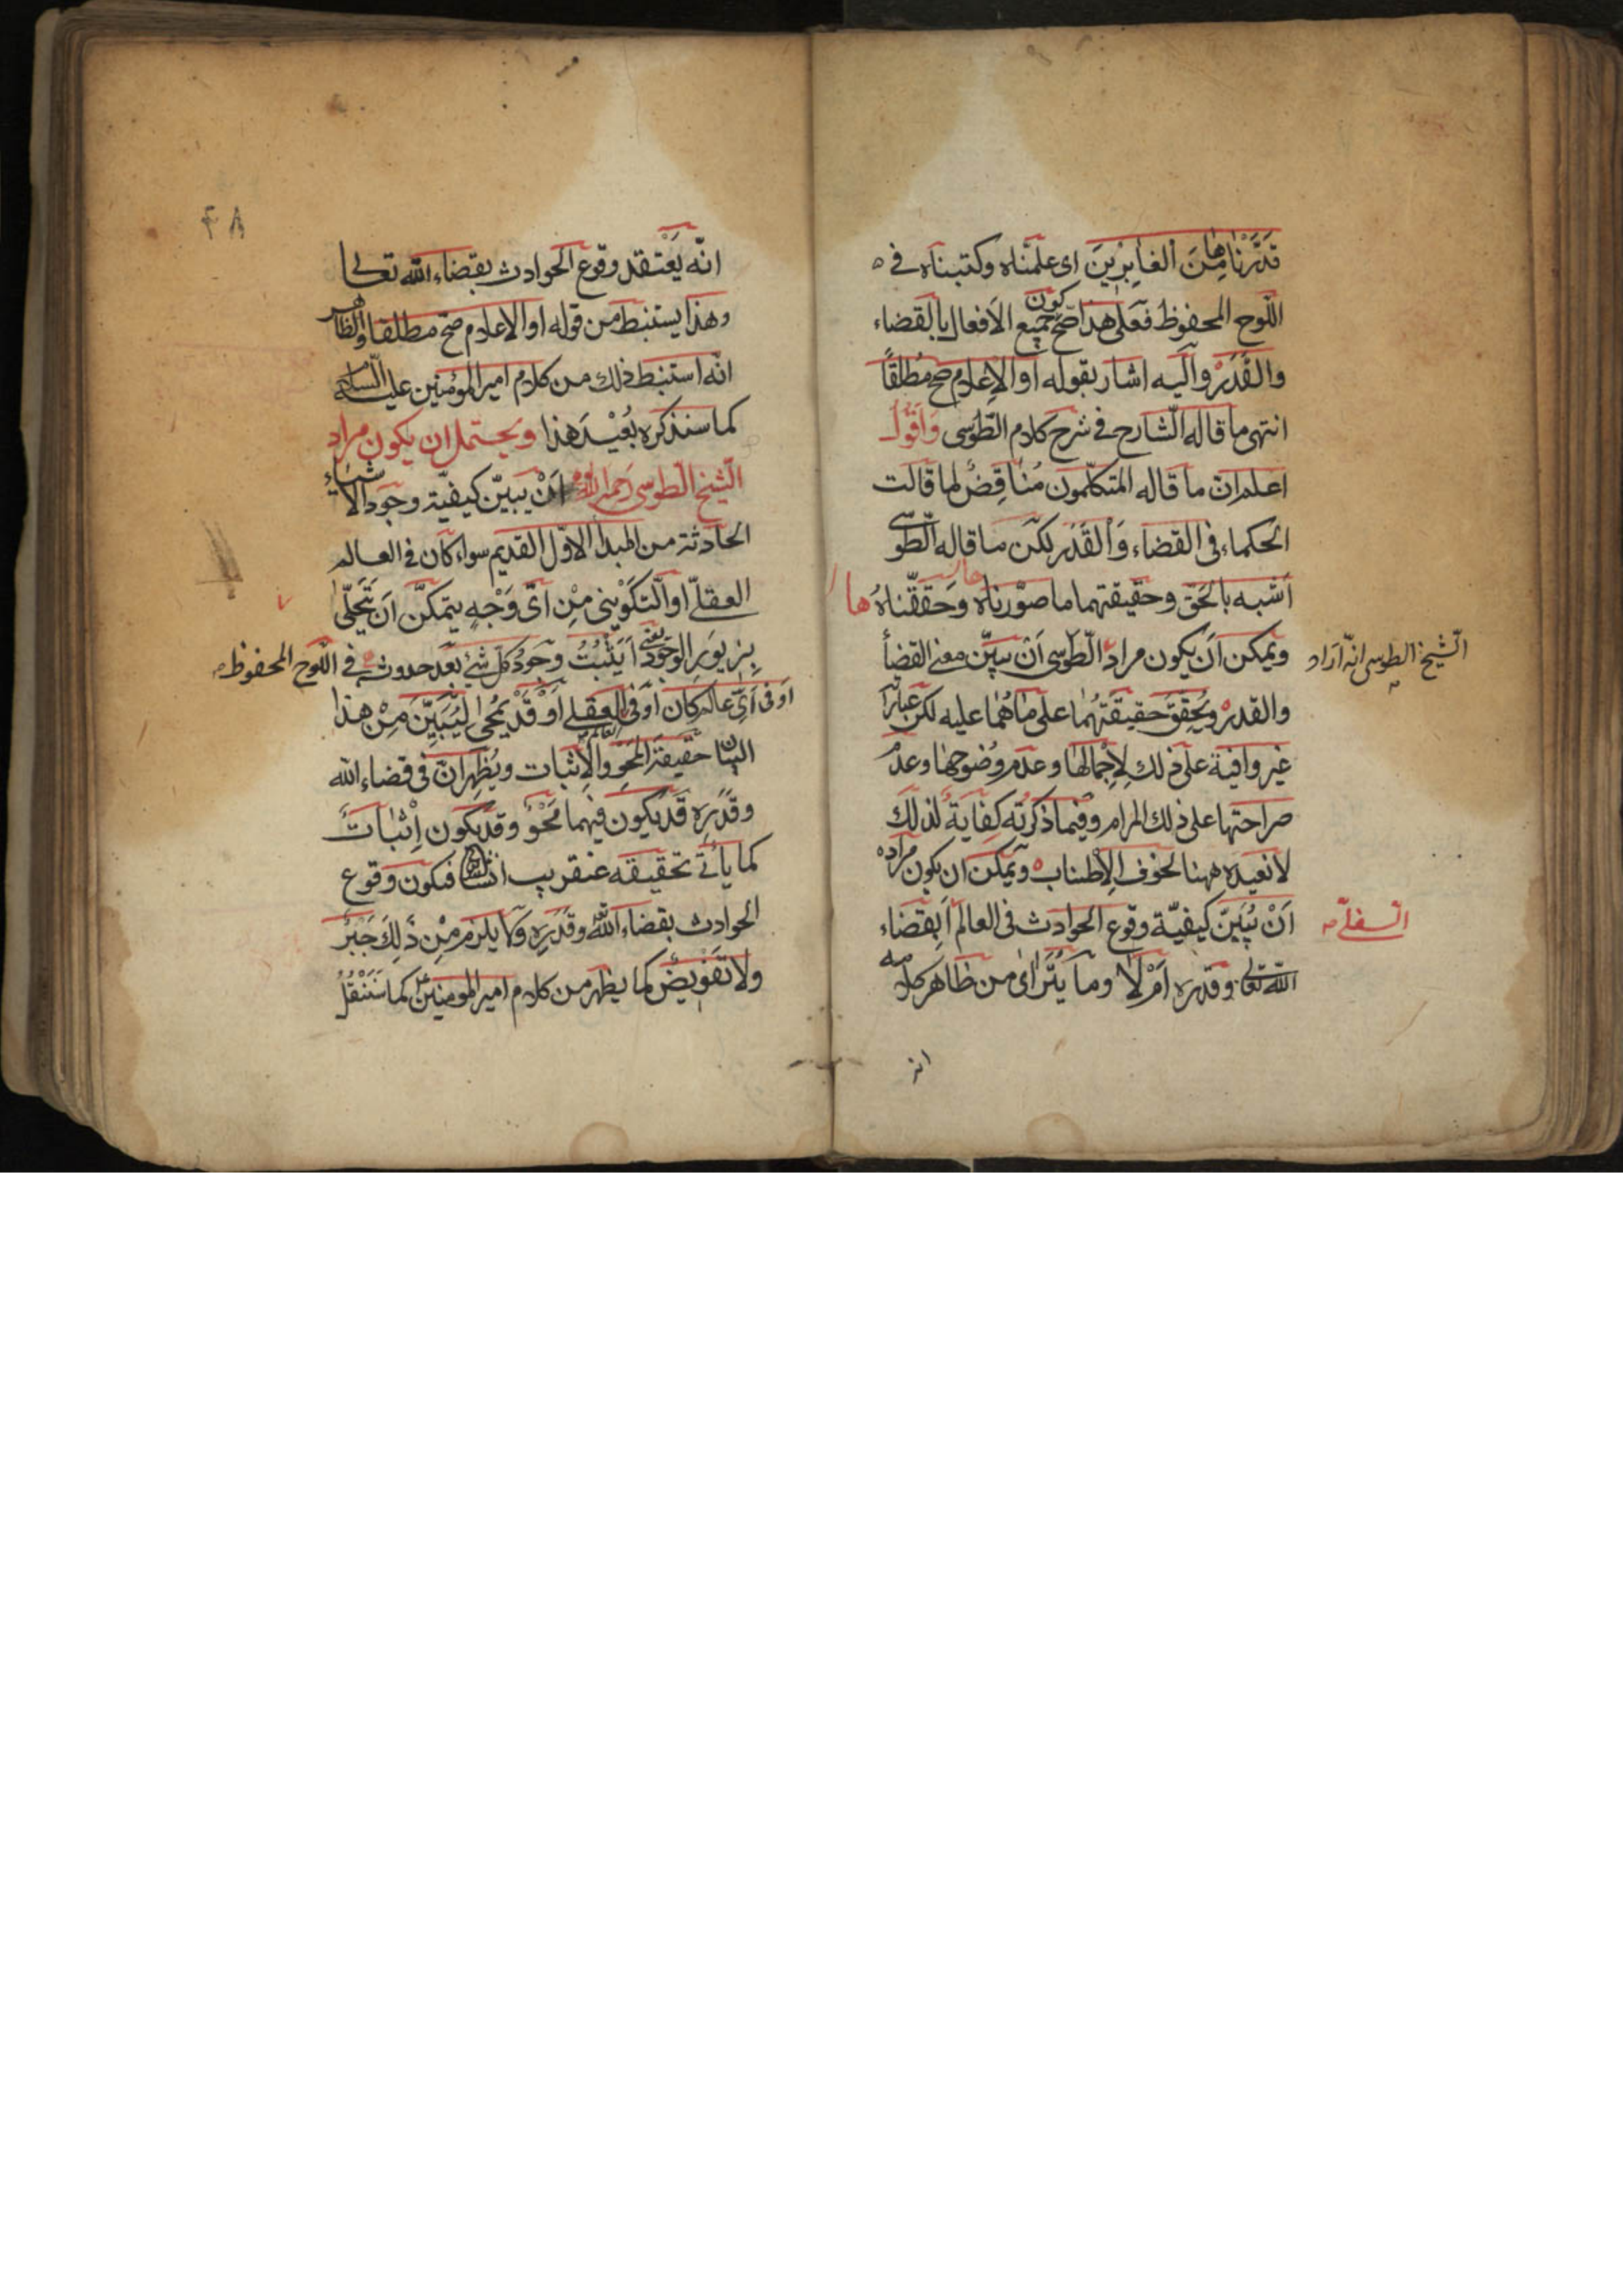 قَدَّرْنَاهَا مِنَ الْغَابِرِينَ اى علمناه وكتبناه فى
اللّوح المحفوظ فعلى هذا صحّ كون جميع الافعال بالقضاء
والقَدَر واليه اشار بقوله او الاعلام صح مُطلقًا
انتهى ما قاله الشّارح فى شرح كلام الطّوسى وَاَقُولُ
اعلم انّ ما قاله المتكلّمون مُنَاقِضٌ لما قالت
الحكماء فى القضاء وَالْقَدَر لكن ما قاله الطّوسّى
اشبه بالحق وحقيقتهما ما صوّرناه وَحَقّقناهُ
ها
ويمكن اَن يكون مراد الطوسى اَنْ يبيّن معنى القضاء
الشّيخ الطوسى انّه اراد
والقدر ويُحقِّقَ حقيقَتَهُما على مَا هُمَا عليه لكن عباراته
غير وافية على ذلك لِاِجْمالها وعدم وُضوحِها وعدم
صراحتها على ذلك المرام وفيما ذكرته كفاية لذلك
لا نعيده ههنا لخوف الاِطناب ويمكن ان يكون مراده
اَنْ يُبَيِّنَ كيفيّة وقوع الحوادث فى العالم اَبِقَضَاء
السفلىّ
اللّه تعالى وقدره اَمْ لَا وما يَتَراىٰ من ظاهر كلامه
انه
٤٨
انّه يَعْتقد وقوع الحوادث بقضاء اللّه تعالى
وهذا يستنبط من قوله او الاعلام صحّ مطلقا والظاهر
انّه استنبط ذلك من كلام امير المؤمنين عليه السلام
كما سنذكره بُعَيْدَ هذا ويحتمل ان يكون مراد
الشّيخ الطوسى رحمه اللّه اَنْ يبيّن كيفيّة وجود الاشياء
الحادثة من المبدأ الاوّل القديم سواء كان فى العالم
العقلىّ او التكوينى مِنْ اَىّ وَجْهٍ يتمكّن اَن يَتَحلّىٰ
بِزيورِ الوجود يعنى اَيثْبُتُ وجودُ كلّ شئ بعد حدوثه فى اللّوح المحفوظ
او فى اَىّ عالم كان او فى العالم العقلى او قَدْ يُمحى ليُبَيِّنَ مِنْ هذا
البيان حقيقة المَحْو والاِثبات ويُظهِر انّ فى قضاء اللّه
وقَدَرِه قد يكون فيهما مَحْوٌ وقد يكون اِثْبَاتٌ
كما يأتى تحقيقه عنقريب انشاء اللّه فيكون وقوع
الحوادث بقضاء اللّه وقَدَرِه ولا يلزم مِنْ ذَلِكَ جَبْرٌ
ولا تَفْويضٌ كما يظهر من كلام امير المومنين ع كما سَنَنْقُلُ